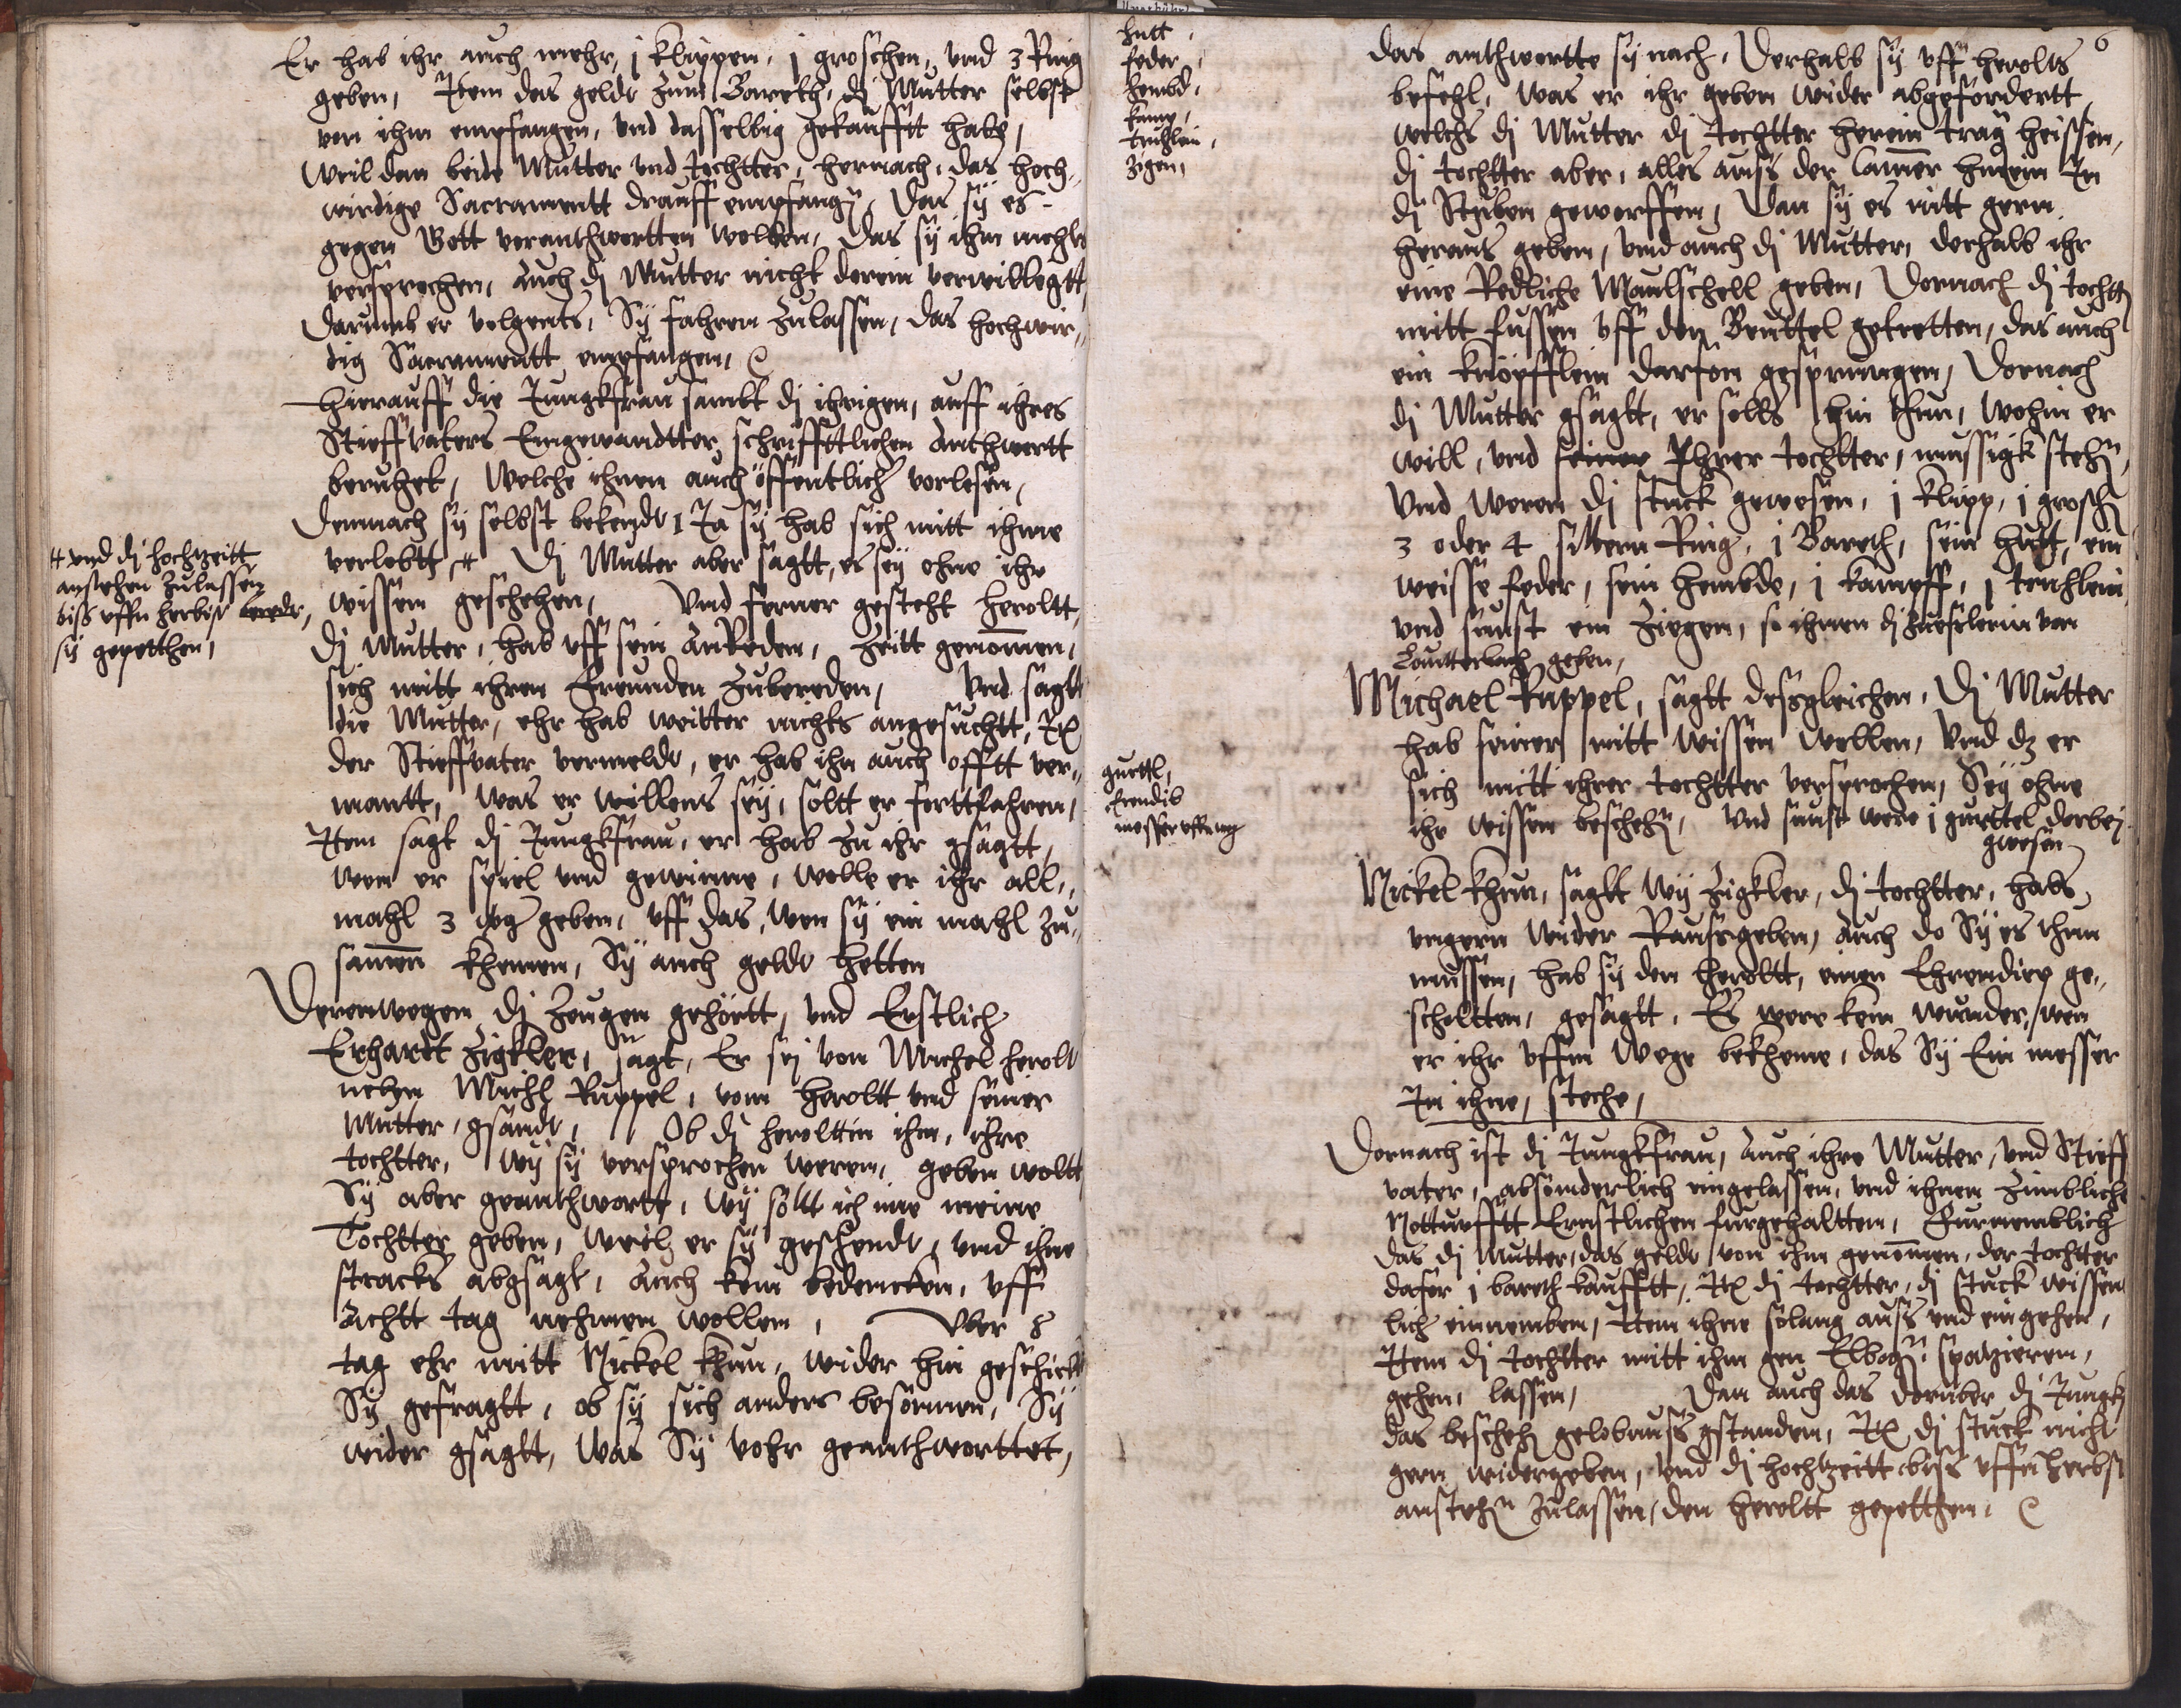 Er hab ihr auch mehr, j Klippen, j groschen, vnd 3 Ring
geben, Item das geldt zum Bareth, dj Mutter selbst
von ihm empfangen, vnd dasselbig gekaufft habe,
Weil dan beide Mutter vnd tochtter, hernach, das hoch-
wirdige Sacramentt drauff empfangen, Das sÿ es
gegen Gott veranthwortten wolten, Das sÿ ihm nichts
versprochen, Auch dj Mutter nicht darein verwilligtt,
Darumb er volgents, Sÿ fahren Zulassen, das hochwir-
dig Sacramentt empfangen,
Hierauff die Jungkfrau sambt dj ihrigen, auff ihres
Stieffvaters Eingewandtter schrifftlichen Anthwortt
beruhet, Welche ihnen auch öffentlich vorlesen,
Demnach sÿ selbst bekendt, Ja sÿ hab sich mitt ihme
verlobtt, # Dj Mutter aber sagtt, es seÿ ohne ihr
wissen geschehen, Vnd ferner gesteht Heroltt,
# vnd dj hochtzeitt
anstehen Zulassen
biss vffn herbst
sÿ gepetthen,
Dj Mutter, hab vff sein AnReden, Zeitt genommen,
sich mitt ihren Freunden Zubereden, Vnd sagtt
die Mutter, ehr hab weitter nichts angesuchtt,
der Stieffvater vermeldt, er hab ihn auch offtt ver-
mantt, Was er willens seÿ, soltt er forttfahren,
Item sagt dj Jungkfrau, er hab Zu ihr gsagtt,
Wen er spiel vnd gewinne, wolle er ihr all-
mahl 3 geben, vff das, Wen sÿ ein mahl Zu-
samen khemen, Sÿ auch geldt hetten
Derenwegen dj Zeugen gehörtt, vnd Erstlich
Erhardt Zigkler, sagt, Er seÿ von Michel Herolt
nebn Michl Ruppel, vom Heroltt vnd seiner
Mutter, gsandt, Ob dj Heroltin ihm, ihre
tochtter, Wÿ sÿ versprochen weren, geben woltt
Sÿ aber geanthwortt, Wÿ soltt ich ime meine
Tochtter geben, Weil er sÿ geschendt, vnd ihne
stracks abgsagt, Auch kein bedencken, vff
Achtt tag nehmen wollen, Vber 8
tag ehr mitt Nickel Khun, wider hin geschickt
Sÿ gefragtt, ob sÿ sich anders besonnen, Sÿ
wider gsagtt, Was Sÿ vohr geanthworttet,
hutt,
feder,
hembd,
kamp,
truhlein,
Zigen,
6
das anthwortte sÿ nach, Derhalb sÿ vff Herolts
befehl, Was er ihr geben wider abgefordertt,
welchs dj Mutter dj tochtter herein trag heissen,
dj tochtter aber, alles auss der Camer hinein In
dj Stuben geworffen, Dan sÿ es nitt gern
heraus geben, vnd auch dj Mutter, derhalb ihr
eine Redliche Maulschell geben, Dornach dj tochtt
mitt fussen vff den Beuttel getretten, das auch
ein Knöpfflein darfon gesprungen, Dornach
dj Mutter gsagtt, er solls hin thun, wohin er
will, vnd seiner Ihrer tochtter, mussigk stehn,
Vnd weren dj stuck gewesen, j Klipp, j grosch
3 oder 4 silbern Ring, j Bareth, sein hutt, ein
weisse feder, sein hembde, j kampff, j truhlein
vnd sunst ein Ziegen, so ihnen dj von
Lautterbach geben,
Michael Ruppel, sagtt dessgleichen, Dj Mutter
hab seiner nitt wissen wollen, Vnd dz er
sich mitt ihrer tochtter versprochen, Seÿ ohne
ihr wissen beschehn, Vnd sunst were j gurttel derbej
gwesen
gurttl,
Erendib
messer
Nickel Khun, sagtt Wÿ Zigkler, dj tochtter, habs
vngern wider Raussgeben, Auch do Sÿ es thun
mussen, hab sÿ den Heroltt, einen Ehrendiep ge-
scholtten, gesagtt, Es were kein wunder, wen
er ihr vffm Wege bekheme, das Sÿ Ein messer
In ihne, steche,
Dornach ist dj Jungkfrau, Auch ihre Mutter, vnd Stieff
vater, absonderlich eingelassen, vnd ihnen Zimbliche
Notturfftt Ernstlichen furgehaltten, Furnemblich
das dj Mutter, das geldt von ihm genommen, der tochtter
dafor j bareth kaufftt, dj tochtter, dj stuck wissen
lich einnemben, Item ihne solang auss vnd ein gehen,
Item dj tochtter mitt ihm gen Elbogn spatzieren,
gehen, lassen, Dan auch das darüber dj Jungk
das beschehn gelobnuss gstanden, dj stuck nicht
gern widergeben, vnd dj hochtzeitt biss vffn herbst
anstehn Zulassen, den Heroltt gepetthen,